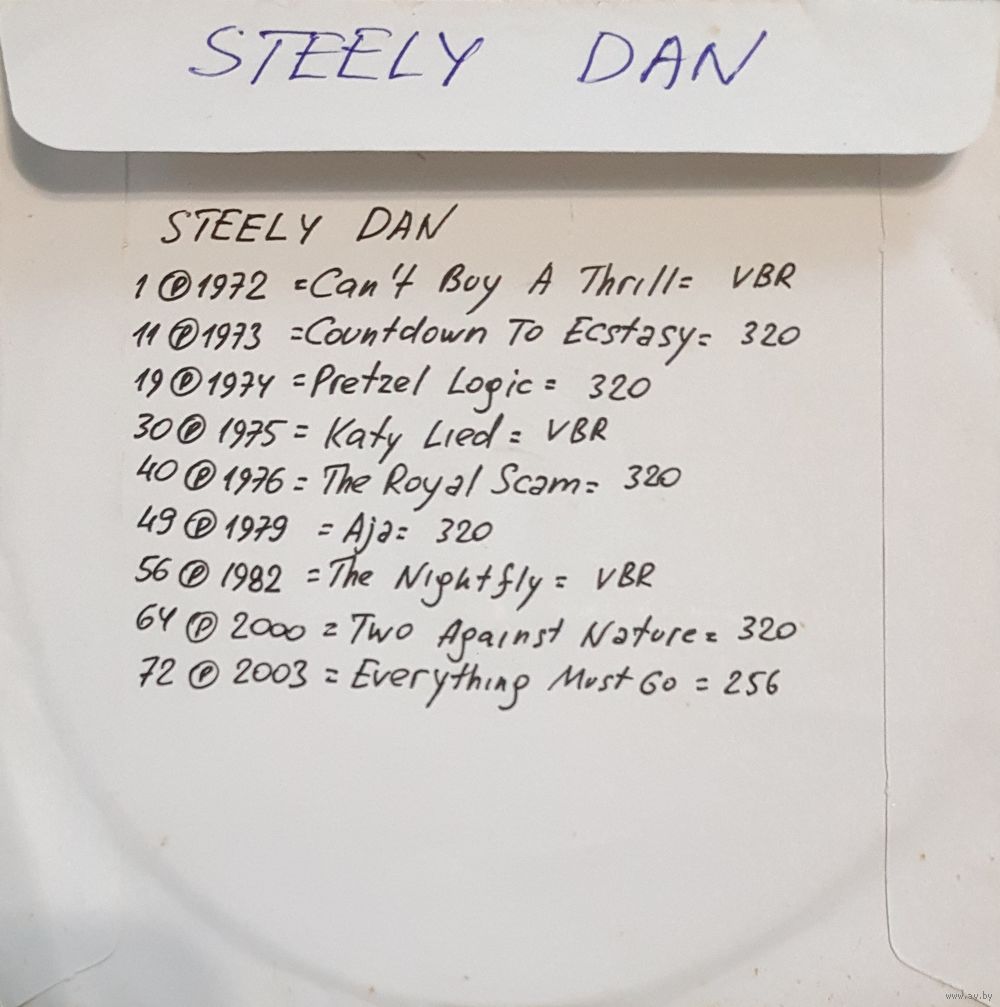 STEELY DAN
STEELY DAN
1 Ⓟ 1972 = Can't Buy A Thrill = VBR
11 Ⓟ 1973 = Countdown To Ecstasy = 320
19 Ⓟ 1974 = Pretzel Logic = 320
30 Ⓟ 1975 = Katy Lied = VBR
40 Ⓟ 1976 = The Royal Scam = 320
49 Ⓟ 1979 = Aja = 320
56 Ⓟ 1982 = The Nightfly = VBR
64 Ⓟ 2000 = Two Against Nature = 320
72 Ⓟ 2003 = Everything Must Go = 256
www.ay.by